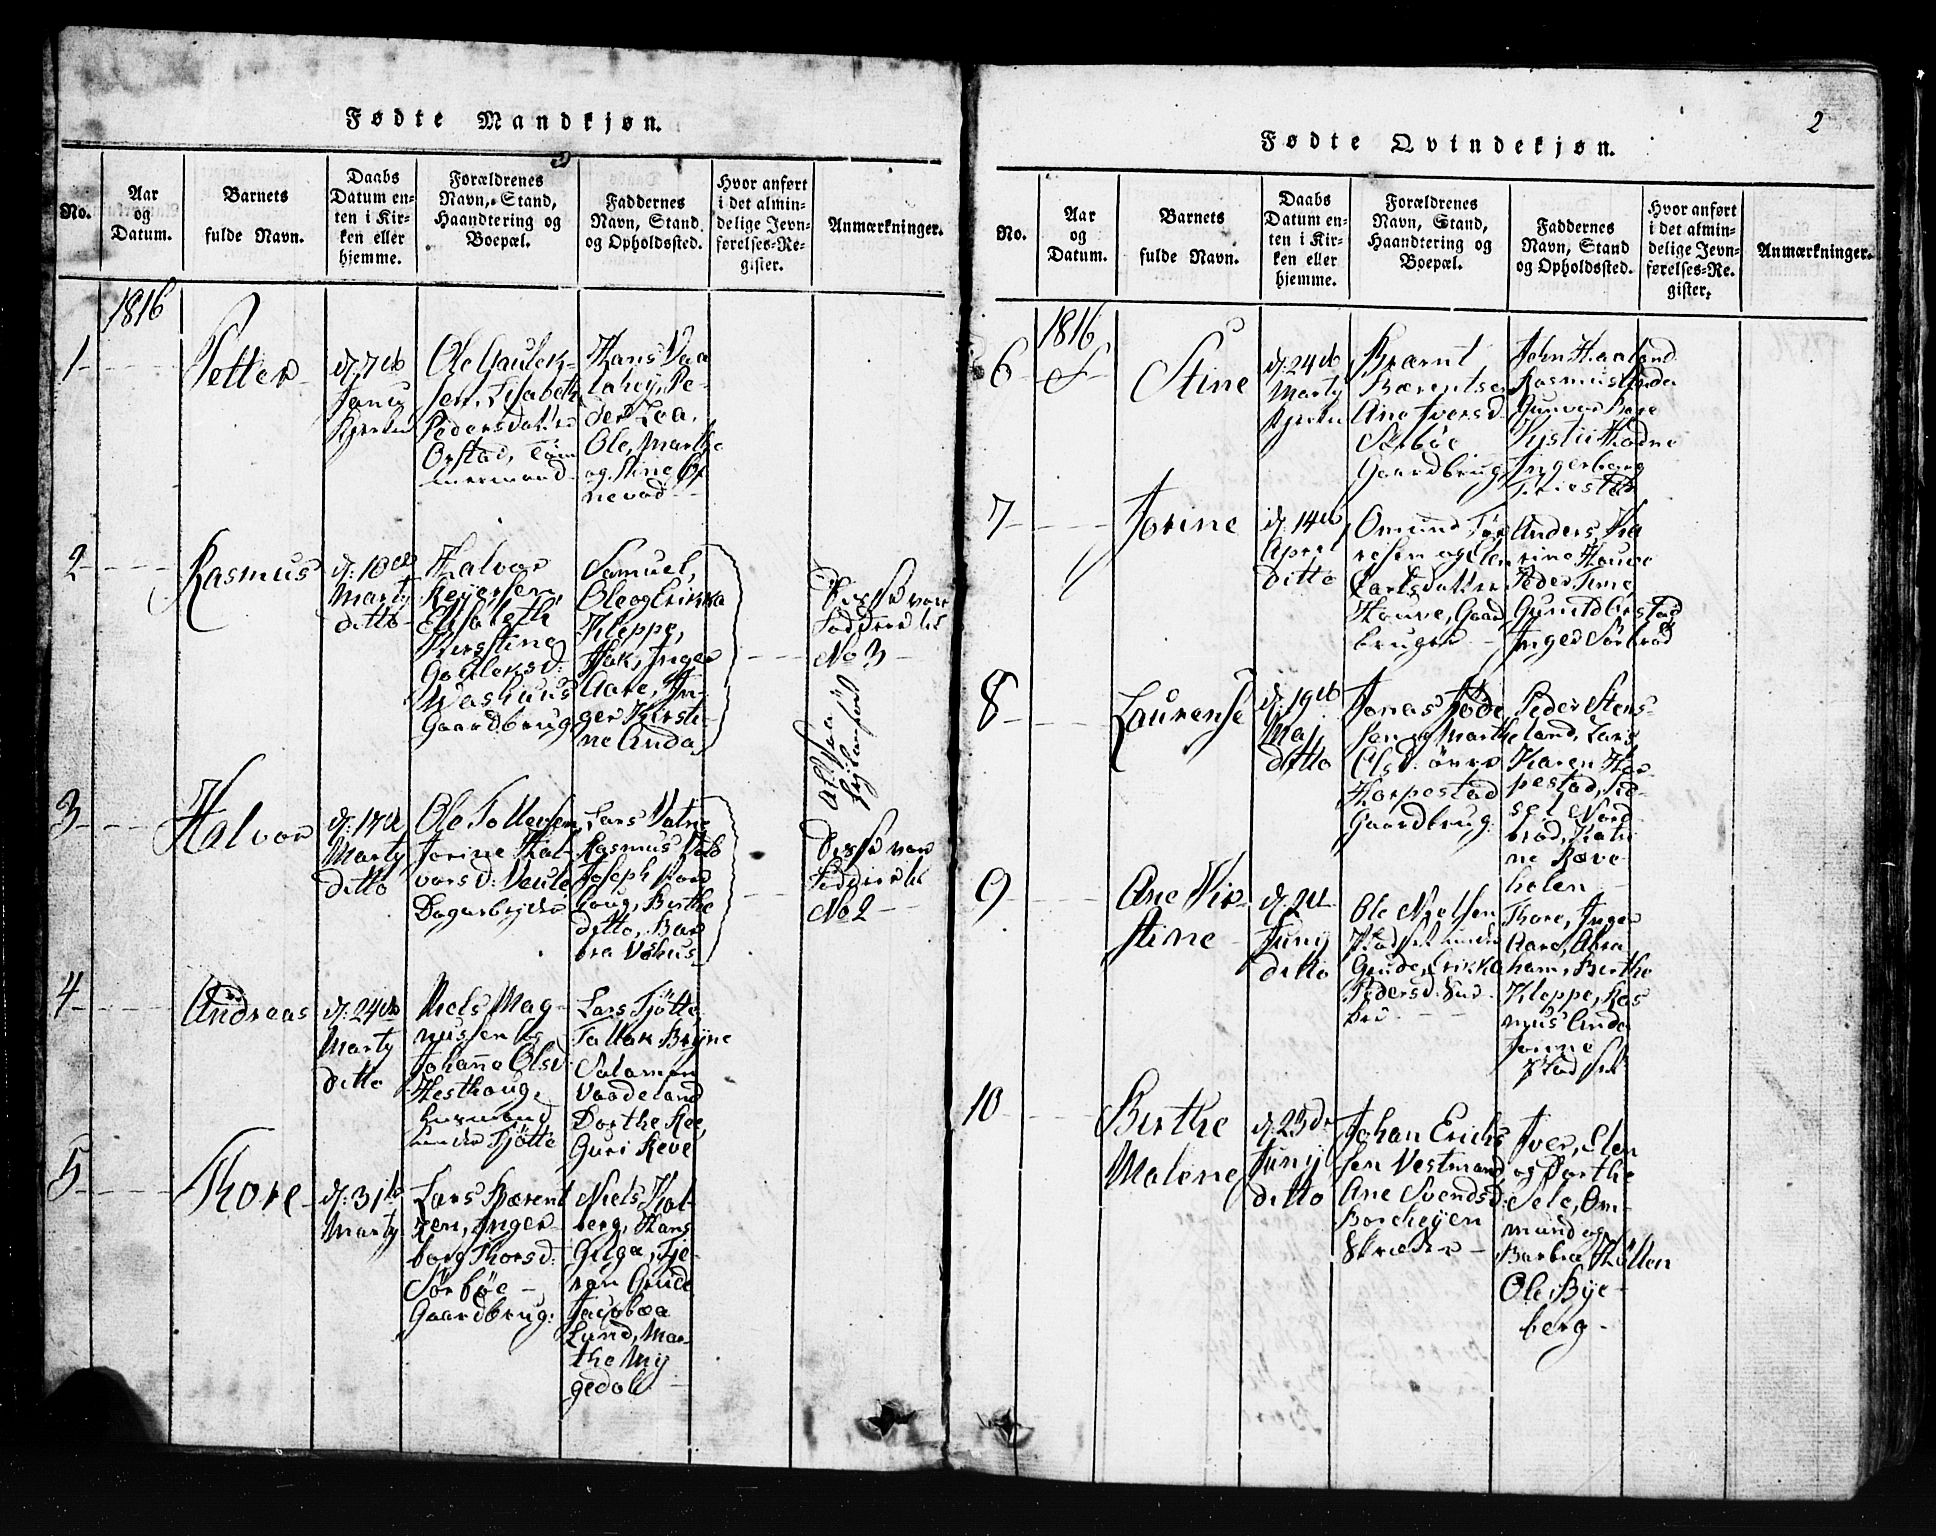 Fødte Mandkjøn.
No.
Aar
og
Datum.
Barnets
fulde Navn.
Daabs
Datum en-
ten i Kir-
ken eller
hjemme.
Forældrenes
Navn, Stand,
Haandtering og
Boepæl.
Faddernes
Navn, Stand
og Opholdssted.
Hvor anført
i det almin-
delige Jevn-
førelses-Re-
gister.
Anmærkninger.
1816
1
Petter
d. 7de
Janu
Kjerken
Ole Gaulek-
sen, Lisabeth
Pedersdatter
Orstad, Tøm
mermand
Hans Vaa
Peder Lea,
Ole, Marthe
og Stine
nevad
2
Rasmus
d: 10de
Marty
ditto
Halvor
Reiersen,
Elisabeth
Kirstine
Gouleksd:
Washuus
Gaardbrug
Samuel,
Ole og Erikka
Kleppe,
Isak, Inger
Aare, In-
ger Kirsti-
ne Anda
Disse var
Faddere til
No 3
Altsaa
feilanført
3
Halvor
d: 17de
Marty
ditto
Ole Tollevsen,
Jorine Hal-
vorsd: Vaule
Dagarbejder
Lars Vatne
Rasmus
Joseph Hor
houg, Berthe
ditto, Bar
bra Vshus
Disse var
Faddere til
No 2
4
Andreas
d: 24de
Marty
ditto
Niels Mag-
nussen og
Johanne Olsd:
Hesthoug,
huusmand
under Tjøtte
Lars Tjøtte
Tallak Bryne
Salamon
Vaadeland
Dorthe Ree,
Guri Reve
5
Thore
d: 31te
Marty
Lars Bærent
zen, Inger-
borg Thorsd:
Sørbøe
Gaardbrug:
Niels Hal-
berg, Hans
Gilga, Tje-
ran Grude
Jacobæa
Lund, Mar-
the My
gedal
Fødte Qvindekjøn.
2
No.
Aar
og
Datum.
Barnets
fulde Navn.
Daabs
Datum en-
ten i Kir-
ken eller
hjemme.
Forældrenes
Navn, Stand,
Haandtering og
Boepæl.
Faddernes
Navn, Stand
og Opholdssted.
Hvor anført
i det almin-
delige Jevn-
førelses-Re-
gister.
Anmærkninger.
1816
6
Stine
d: 24de
Marty
Kjerken
Bærent
Bærentsen
Ane Iversd
Sørbøe
Gaardbrug
John Haaland
Rasmus Anda
Gunvor Bore
Kjstii Hodne
Ingerborg
7
Jorine
d: 14de
April
ditto
Omund Tør
resen og Elen
Carlsdatter
Houve, Gaard
bruger
Anders, Ka
rine Houve
Peder Time
Gunild
Inger Sørbrød
8
Laurense
d: 19de
Maj
ditto
Jonas Jøde
sen og Marthe
Olsd: øvre
Horpestad
Gaardbrug
Peder Stens-
land, Lars
Karen Hor-
pestad, Sid-
sel Nord
brød, Katri
ne Ræve-
holen
9
Ane Kir-
stine
d: 2de
Juny
ditto
Ole Nielsen
Pladset under
Grude, Erikka
Pedersd:
Thore, Inger
Aare, Abra-
ham, Berthe
Kleppe, Ras
mus Anda
Jorine
Pladset
10
Berthe
Malene
d: 23de
Juny
ditto
Johan Erichs
sen Vestmand,
Ane Svendsd:
Borchejen
Skræder
Iver, Elen
og Dorthe
Sele, Om-
mund og
Barbra Hølten
Ole Bye-
berg